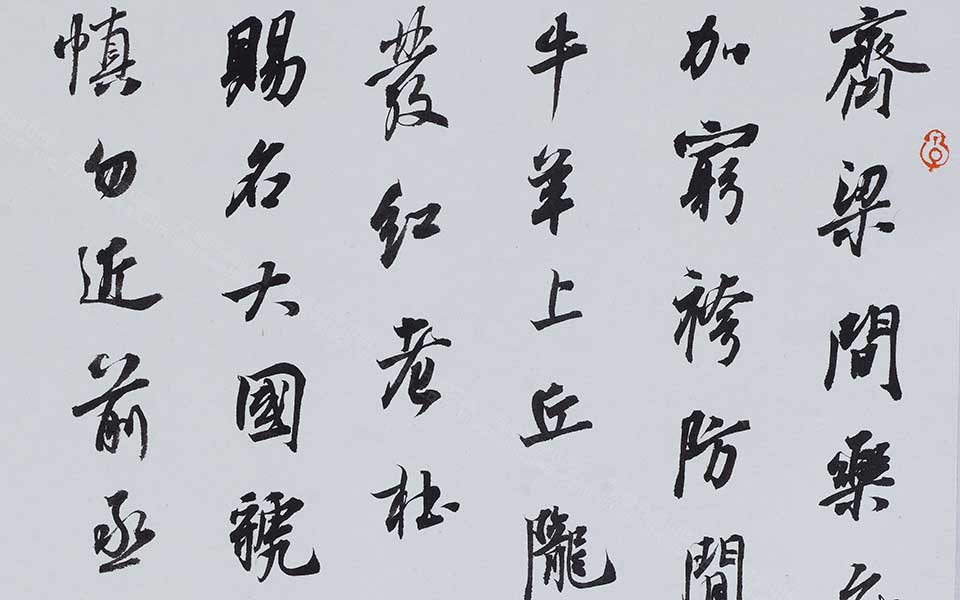 齊梁間樂
加窮袴防閒
牛羊上丘隴
發紅老杜
賜名大國虢
慎勿近前丞